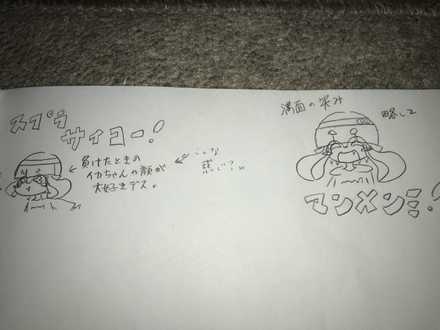 スプラ
サイコー!
←負けたときの
イカちゃんの顔が
大好きデス。
←こんな
感じ?w
満面の笑み
略して
マンメンミ!